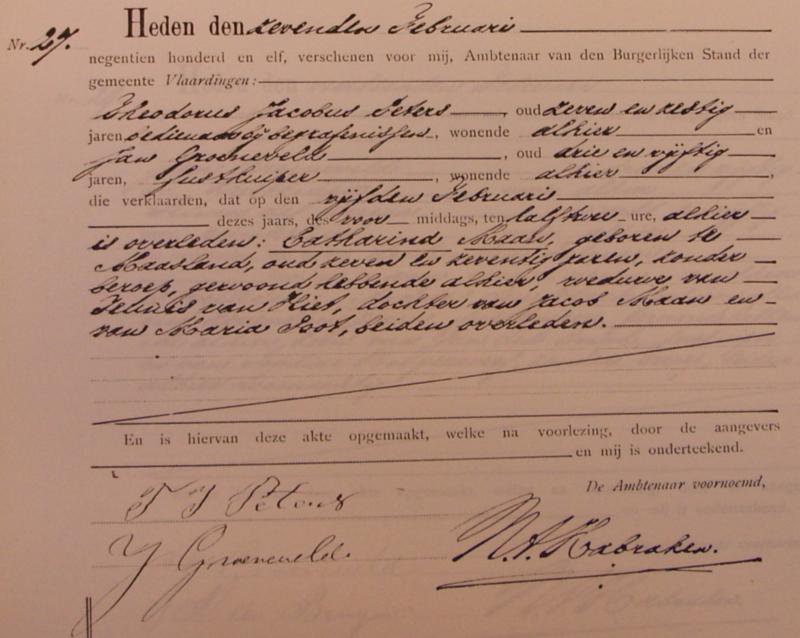 Nr. 27. Heden den zevenden Februari
negentien honderd en elf, verschenen voor mij, Ambtenaar van den Burgerlijken Stand der
gemeente Vlaardingen:
Theodorus Jacobus Peters, oud zeven en zestig
jaren, bedienaar bij begrafenissen, wonende alhier en
Jan Groeneveld, oud drie en vijftig
jaren, Kuiper, wonende alhier,
die verklaarden, dat op den vijfden Februari
dezes jaars, des voor middags, ten half twee ure, alhier
is overleden: Catharina Maan, geboren te
Maasland, oud zeven en zeventig jaren, zonder
beroep, gewoond hebbende alhier, weduwe van
Teunis van Vliet, dochter van Jacob Maan en
van Maria Poot, beiden overleden.
En is hiervan deze akte opgemaakt, welke na voorlezing, door de aangevers
en mij is onderteekend.
De Ambtenaar voornoemd,
T J Peters
J Groeneveld.
N.A. Habraken.